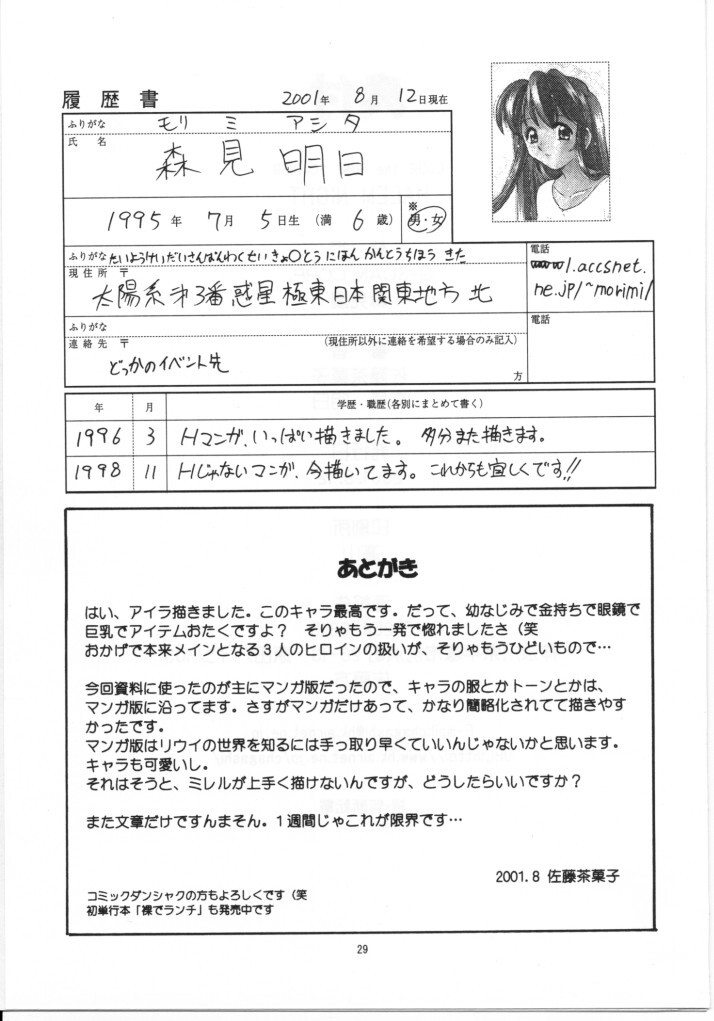 履歴書
2001年 8月 12日現在
ふりがな モリ ミ アシタ
氏名 森見 明日
1995年 7月 5日生 (満 6歳) ※ 男・女
ふりがな たいようけいだいさんばんわくせいきょくとうにほんかんとうちほう きた
現住所 〒
太陽系第3番惑星極東日本関東地方 北
電話
www1.accsnet.
ne.jp/~morimi/
ふりがな
連絡先 〒 (現住所以外に連絡を希望する場合のみ記入)
どっかのイベント先
方
電話
年 月 学歴・職歴(各別にまとめて書く)
1996 3 Hマンガ、いっぱい描きました。 多分また描きます。
1998 11 Hじゃないマンガ、今描いてます。これからも宜しくです!!
あとがき
はい、アイラ描きました。このキャラ最高です。だって、幼なじみで金持ちで眼鏡で
巨乳でアイテムおたくですよ? そりゃもう一発で惚れましたさ(笑
おかげで本来メインとなる3人のヒロインの扱いが、そりゃもうひどいもので…
今回資料に使ったのが主にマンガ版だったので、キャラの服とかトーンとかは、
マンガ版に沿ってます。さすがマンガだけあって、かなり簡略化されてて描きやす
かったです。
マンガ版はリウイの世界を知るには手っ取り早くていいんじゃないかと思います。
キャラも可愛いし。
それはそうと、ミレルが上手く描けないんですが、どうしたらいいですか?
また文章だけですんまそん。1週間じゃこれが限界です…
2001.8 佐藤茶菓子
コミックダンシャクの方もよろしくです(笑
初単行本「裸でランチ」も発売中です
29